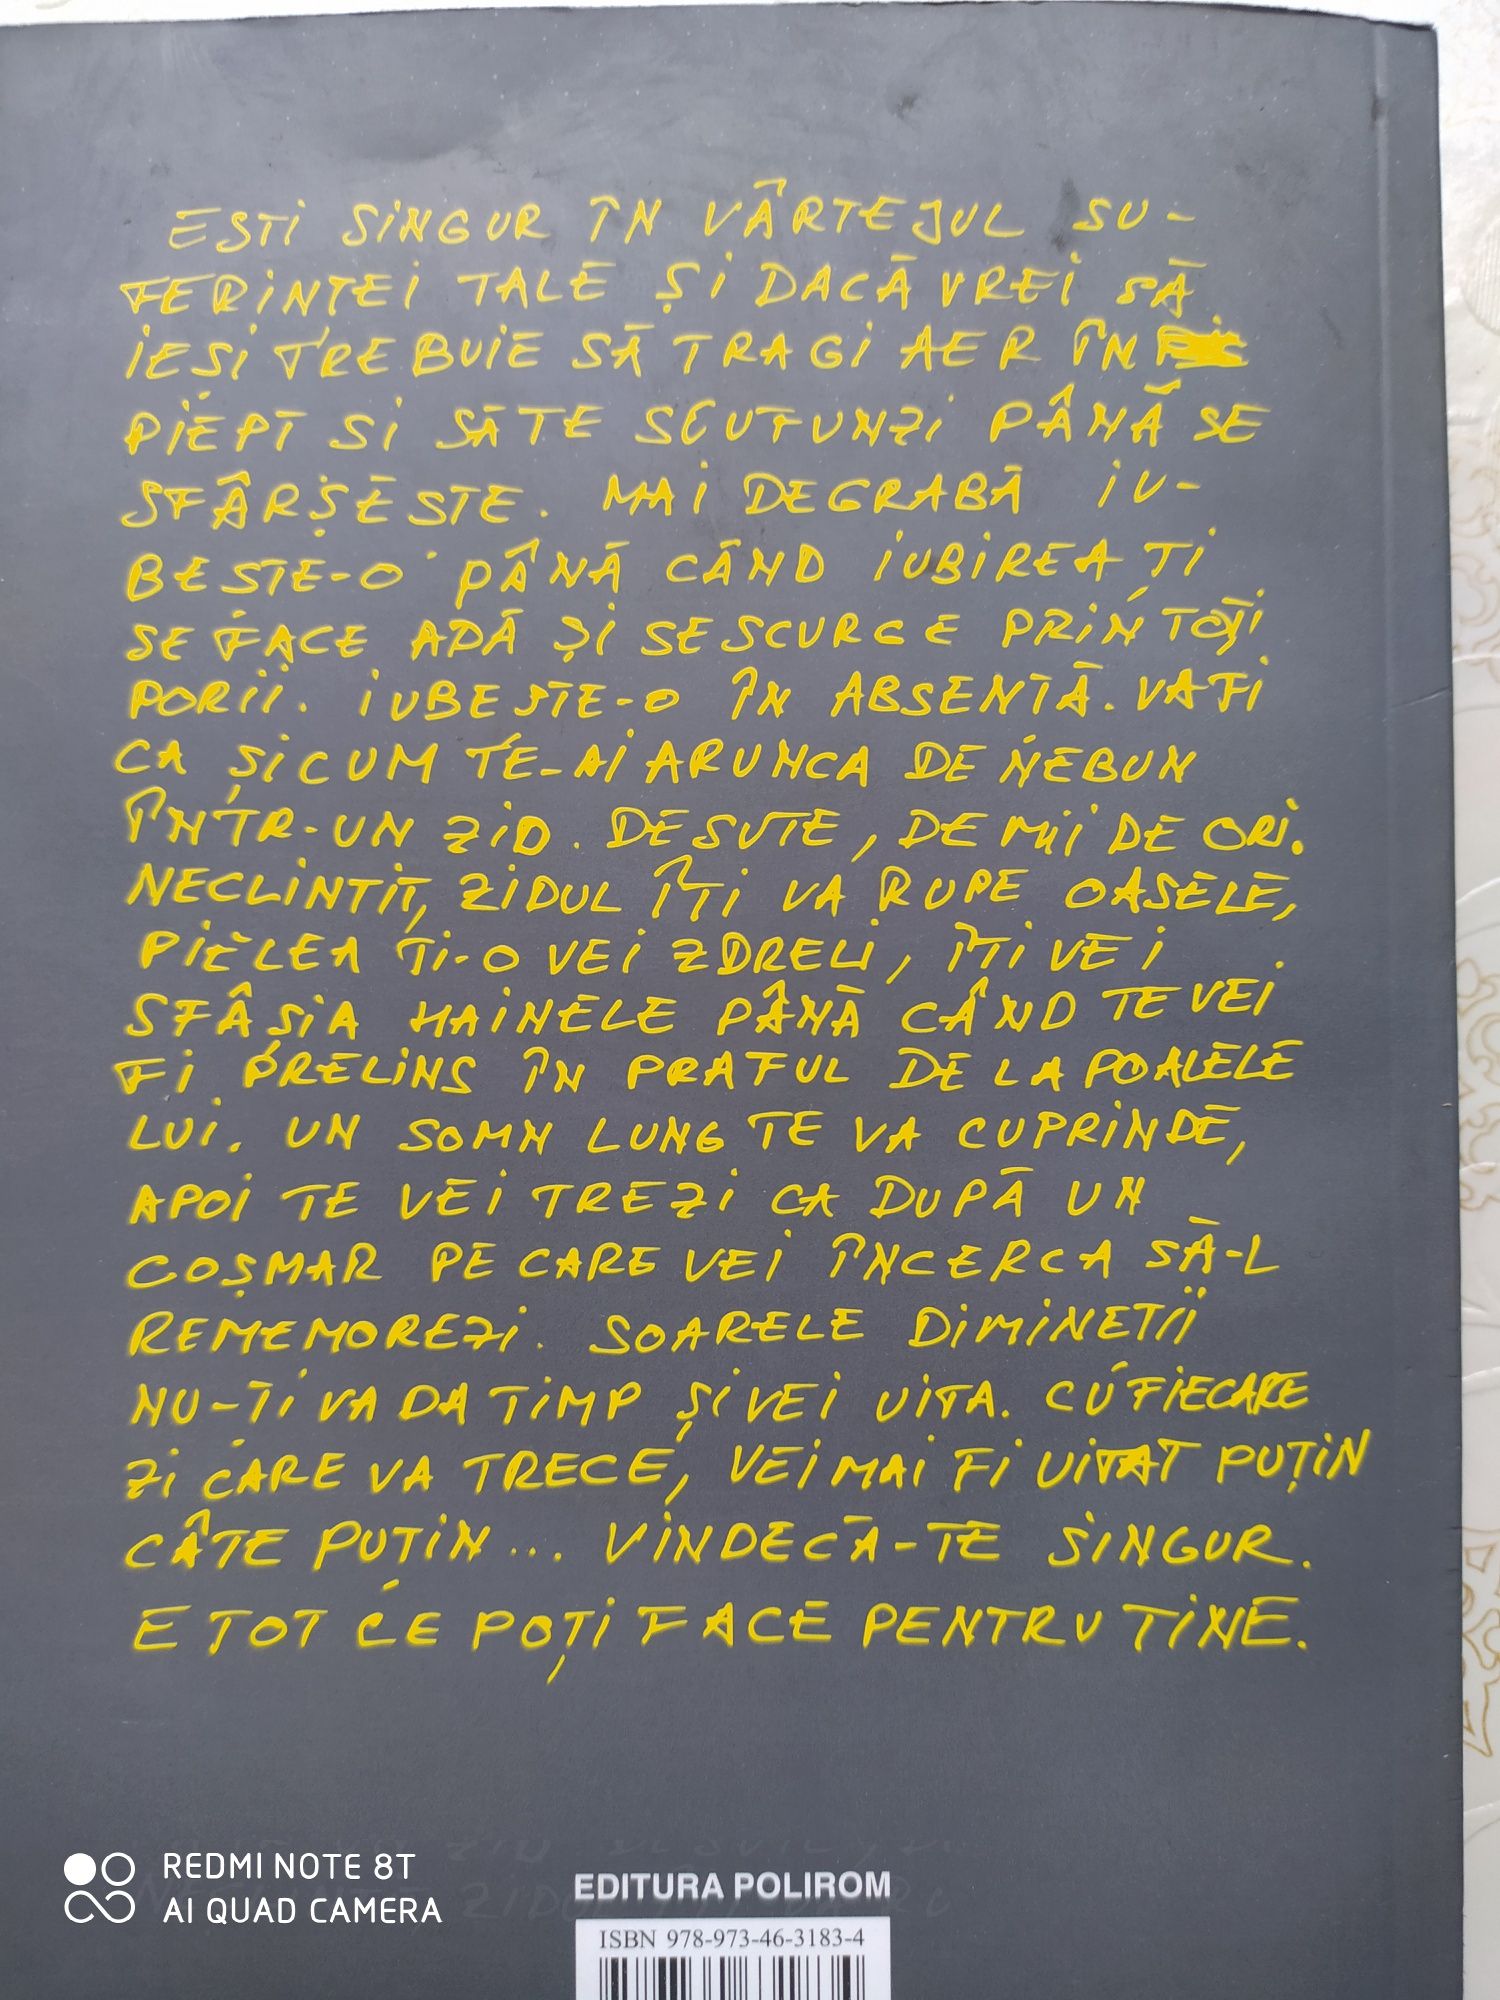 EȘTI SINGUR ÎN VÂRTEJUL SU-
FERINȚEI TALE ȘI DACĂ VREI SĂ
IEȘI TREBUIE SĂ TRAGI AER ÎN
PIEPT ȘI SĂ TE SCUFUNZI PÂNĂ SE
SFÂRȘEȘTE. MAI DEGRABĂ IU-
BEȘTE-O PÂNĂ CÂND IUBIREA ȚI
SE FACE APĂ ȘI SE SCURGE PRIN TOȚI
PORII. IUBEȘTE-O ÎN ABSENȚĂ. VA FI
CA ȘI CUM TE-AI ARUNCA DE NEBUN
ÎNTR-UN ZID. DE SUTE, DE MII DE ORI.
NECLINTIT, ZIDUL ÎȚI VA RUPE OASELE,
PIELEA ȚI-O VEI ZDRELI, ÎȚI VEI
SFÂȘIA HAINELE PÂNĂ CÂND TE VEI
FI PRELINS ÎN PRAFUL DE LA POALELE
LUI. UN SOMN LUNG TE VA CUPRINDE,
APOI TE VEI TREZI CA DUPĂ UN
COȘMAR PE CARE VEI ÎNCERCA SĂ-L
REMEMOREZI. SOARELE DIMINEȚII
NU-ȚI VA DA TIMP ȘI VEI UITA. CU FIECARE
ZI CARE VA TRECE, VEI MAI FI UITAT PUȚIN
CÂTE PUȚIN... VINDECĂ-TE SINGUR.
E TOT CE POȚI FACE PENTRU TINE.
EDITURA POLIROM
ISBN 978-973-46-3183-4
REDMI NOTE 8T
AI QUAD CAMERA